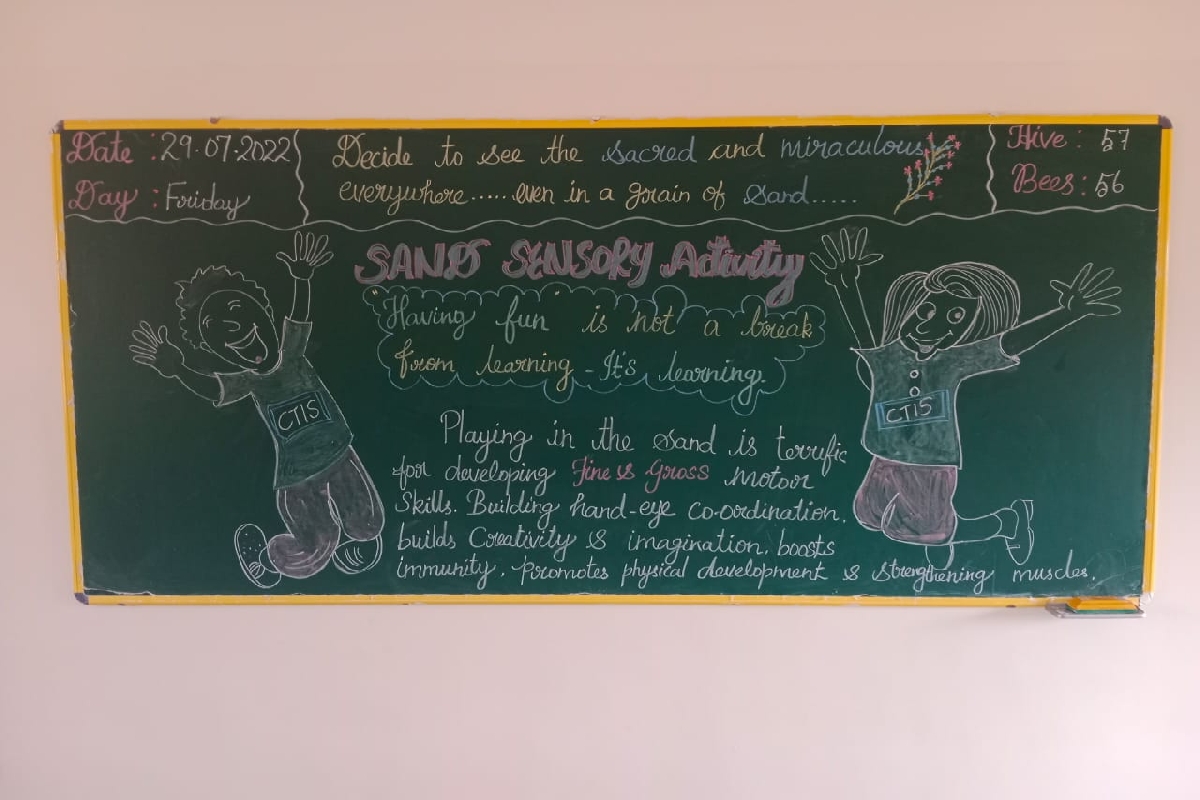 Date : 29.07.2022
Day : Friday
Decide to see the sacred and miraculous
everywhere......even in a grain of sand.....
Hive : 57
Bees : 56
SAND SENSORY Activity
"Having fun" is not a break
from learning - It's learning.
CTIS
CTIS
Playing in the sand is terrific
for developing Fine & Gross Motor
Skills. Building hand-eye co-ordination,
builds Creativity & imagination, boosts
immunity, promotes physical development & strengthening muscles.